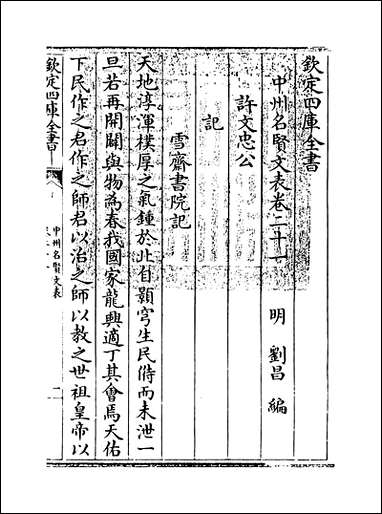 欽定四庫全書
中州名賢文表卷二十一
明 劉昌 編
許文忠公
記
雪齋書院記
天地淳渾樸厚之氣鍾於北自顥穹生民偫而未泄一
旦若再開闢與物為春我國家龍興適丁其會焉天佑
下民作之君作之師君以治之師以教之世祖皇帝以
欽定四庫全書
中州名賢文表